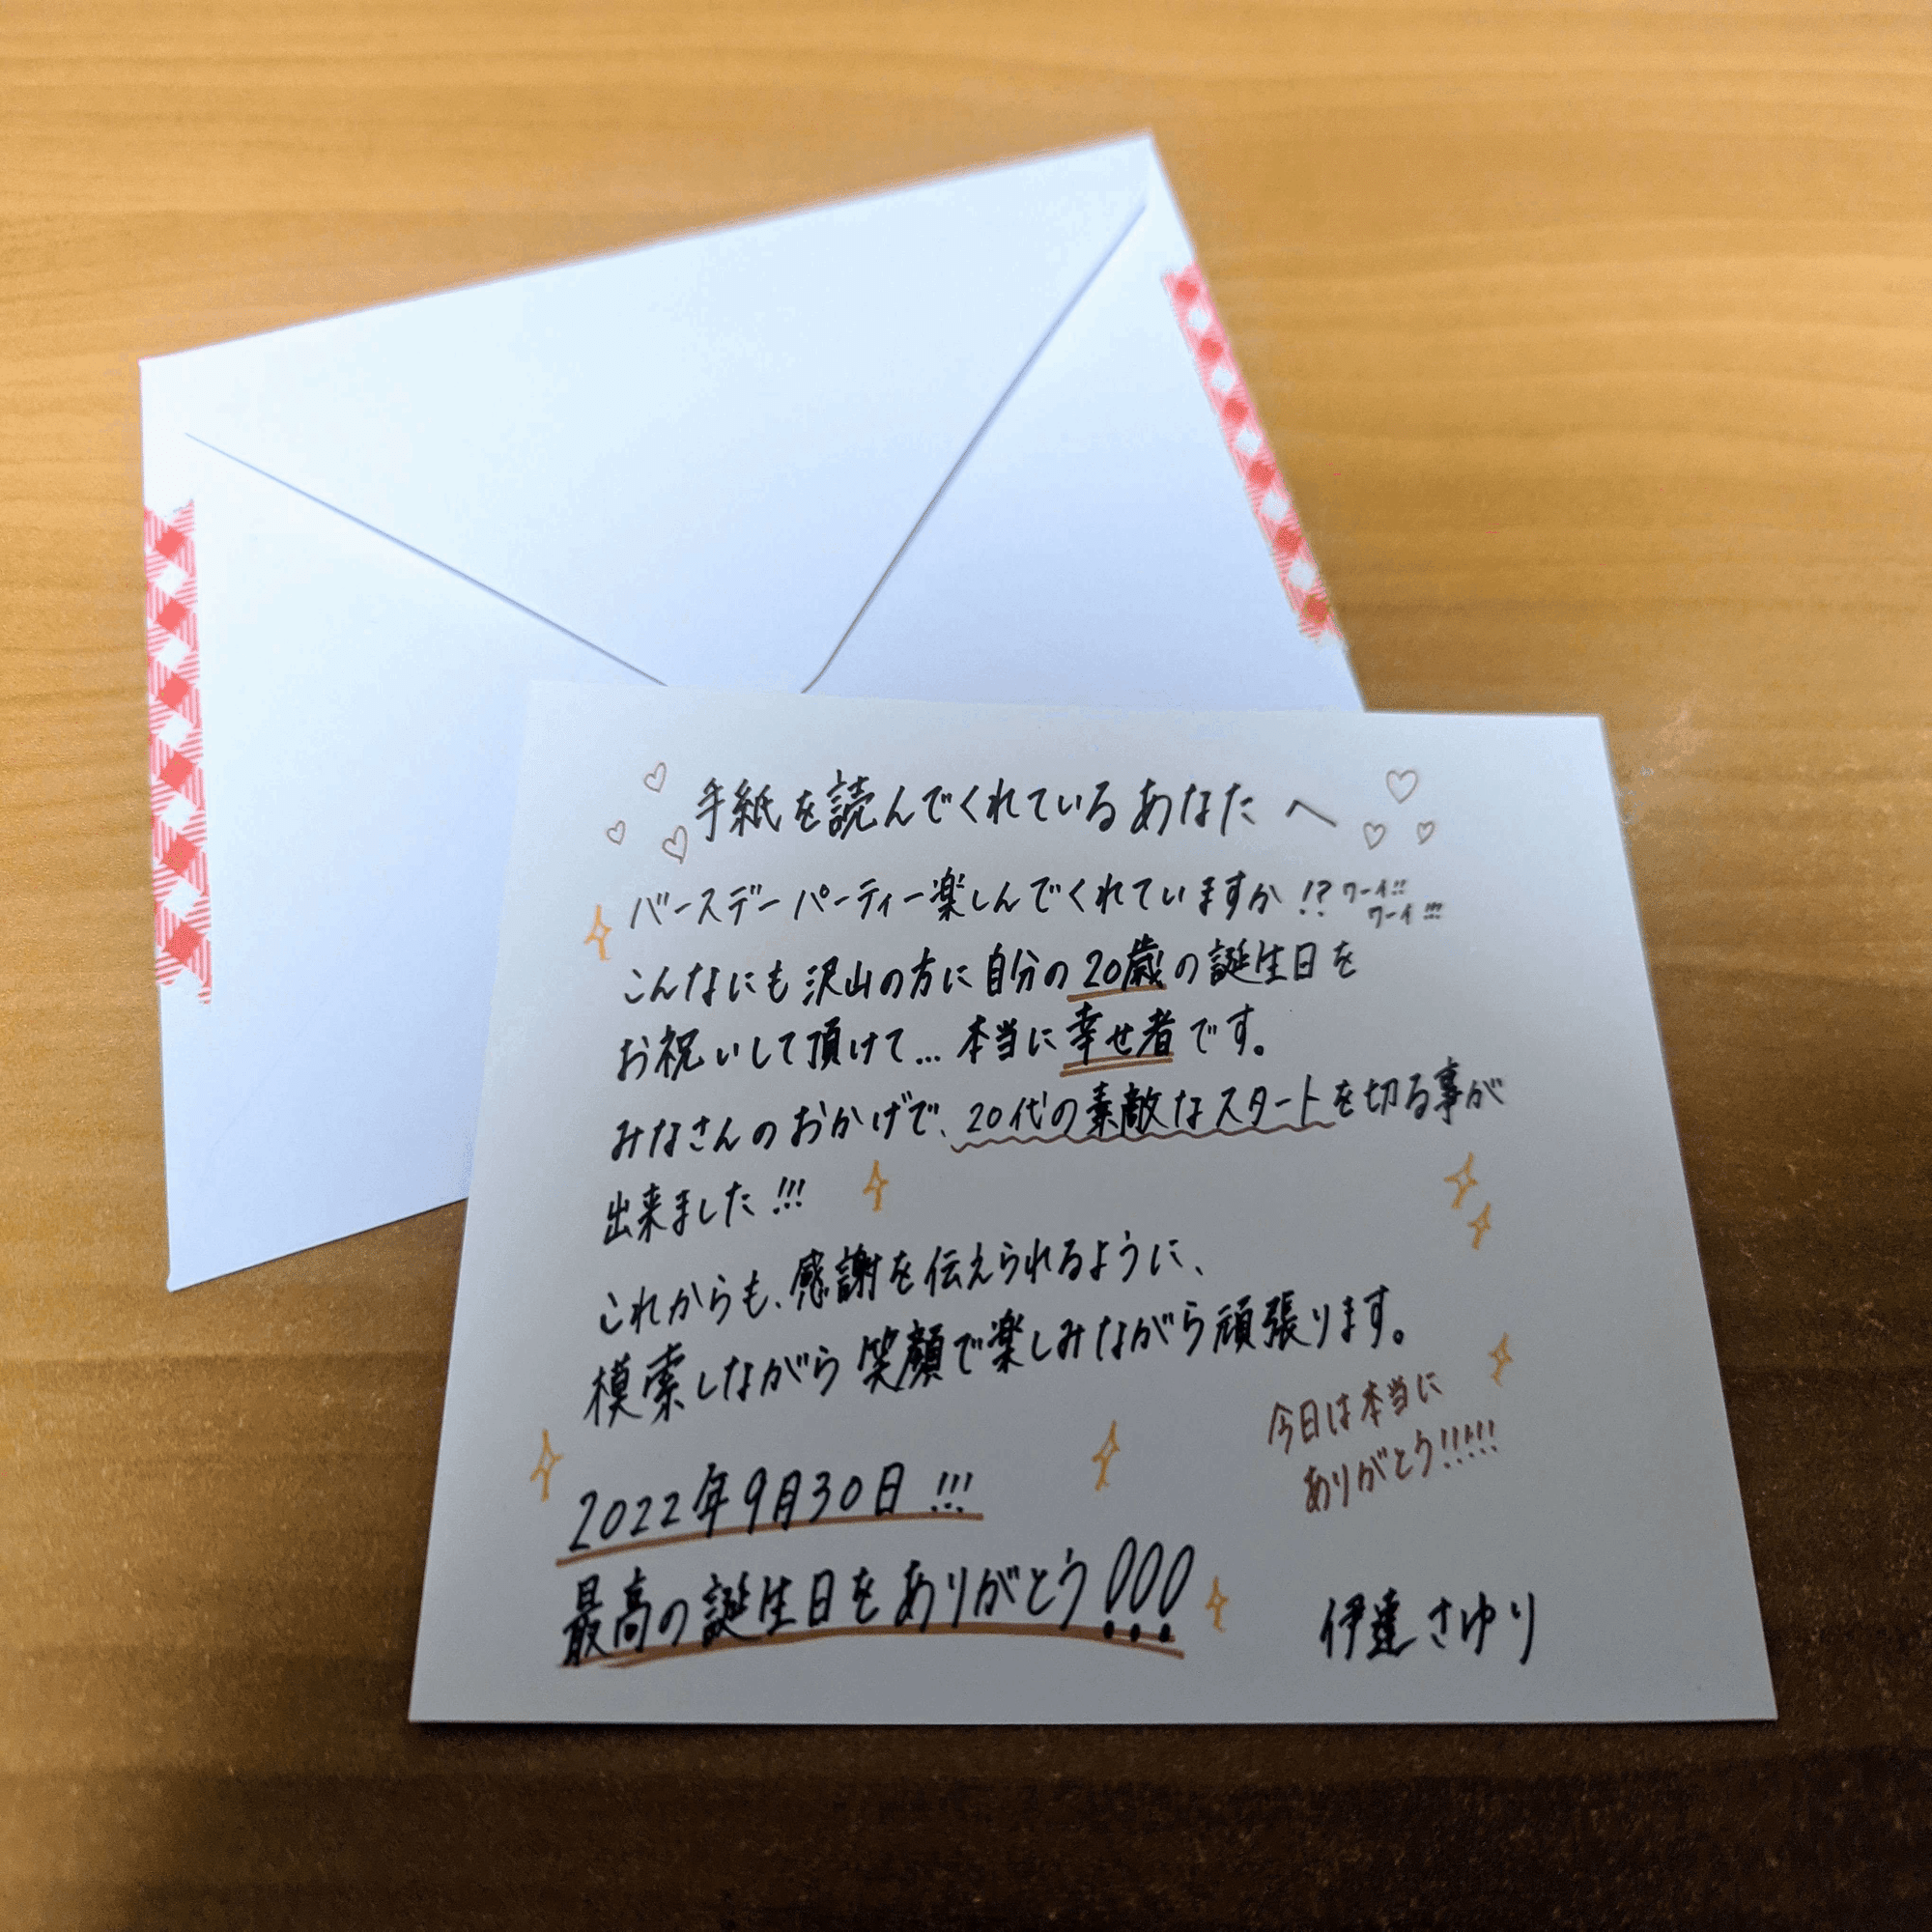 手紙を読んでくれているあなたへ
バースデーパーティー楽しんでくれていますか!? ワーイ!!
ワーイ!!!
こんなにも沢山の方に自分の20歳の誕生日を
お祝いして頂けて…本当に幸せ者です。
みなさんのおかげで、20代の素敵なスタートを切る事が
出来ました!!!
これからも、感謝を伝えられるように、
模索しながら笑顔で楽しみながら頑張ります。
今日は本当に
ありがとう!!!!!
2022年9月30日!!!
最高の誕生日をありがとう!!!
伊達さゆり